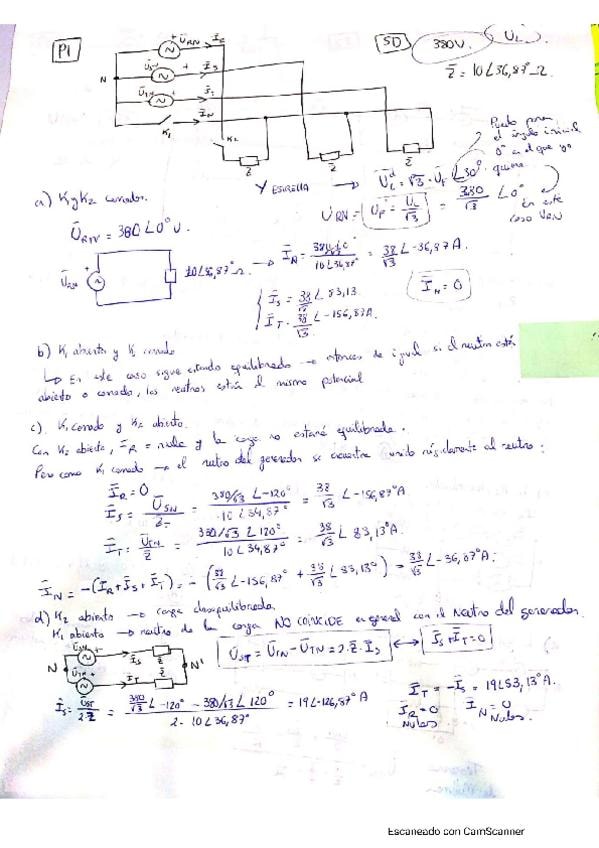 P1
SD
380V.
U̅L.
Z̅ = 10∠36,87° Ω.
U̅RN
I̅R
U̅SN
I̅S
U̅TN
I̅T
N
I̅N
K1
K2
Z̅
Z̅
Z̅
Puedo poner
el ángulo inicial
0° a el que yo
quiera
en este
caso URN
Y ESTRELLA → U̅L = √3 · U̅F ∠30°
a) K1 y K2 cerrados.
U̅RN = U̅F = U̅L/√3 = 380/√3 ∠0°
U̅RN = 380∠0° V.
U̅RN
10∠36,87° Ω → I̅R = 380/√3 ∠0° / 10∠36,87° = 38/√3 ∠-36,87 A.
I̅S = 38/√3 ∠83,13
I̅T = 38/√3 ∠-156,87A.
I̅N = 0
b) K1 abierto y K2 cerrado
↳ En este caso sigue estando equilibrado → entonces da igual si el neutro está
abierto o cerrado, los neutros están al mismo potencial
c). K1 cerrado y K2 abierto.
Con K2 abierto, I̅R = nula y la carga no estará equilibrada.
Pero como K1 cerrado → el neutro del generador se encuentra unido rígidamente al neutro:
I̅R = 0
I̅S = U̅SN/Z̅ = 380/√3 ∠-120° / 10∠36,87° = 38/√3 ∠-156,87° A
I̅T = U̅TN/Z̅ = 380/√3 ∠120° / 10∠36,87° = 38/√3 ∠83,13° A.
I̅N = -(I̅R + I̅S + I̅T) = -(38/√3 ∠-156,87° + 38/√3 ∠83,13°) = 38/√3 ∠-36,87° A.
d) K2 abierto → carga desequilibrada.
K1 abierto → neutro de la carga NO COINCIDE en general con el neutro del generador.
U̅SN
I̅S
Z̅
N
N'
U̅TN
I̅T
Z̅
U̅ST = U̅SN - U̅TN = 2·Z̅·I̅S ↔ I̅S + I̅T = 0
I̅S = U̅ST/2·Z̅ = 380/√3 ∠-120° - 380/√3 ∠120° / 2·10∠36,87° = 19∠-126,87° A
I̅T = -I̅S = 19∠53,13° A.
I̅R = 0
NULAS
I̅N = 0
Nulas.
Escaneado con CamScanner